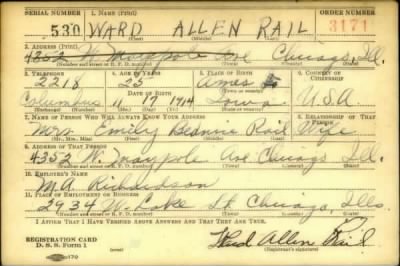 SERIAL NUMBER 1. NAME (Print) ORDER NUMBER
530 WARD ALLEN RAIL 3171
(First) (Middle) (Last)
2. ADDRESS (Print)
4352 W. Maypole Ave Chicago, Ill.
(Number and street or R. F. D. number) (Town) (County) (State)
3. TELEPHONE 4. AGE IN YEARS 5. PLACE OF BIRTH 6. COUNTRY OF CITIZENSHIP
2218 25 Ames
DATE OF BIRTH (Town or county)
Columbus 11 17 1914 Iowa U.S.A
(Exchange) (Number) (Mo.) (Day) (Yr.) (State or country)
7. NAME OF PERSON WHO WILL ALWAYS KNOW YOUR ADDRESS 8. RELATIONSHIP OF THAT PERSON
Mrs Emily Rail Wife
(Mr., Mrs., Miss) (First) (Middle) (Last)
9. ADDRESS OF THAT PERSON
4352 W. Maypole Ave Chicago Ill.
(Number and street or R. F. D. number) (Town) (County) (State)
10. EMPLOYER'S NAME
M.A. Richardson
11. PLACE OF EMPLOYMENT OR BUSINESS
2934 W. Lake St Chicago, Ills.
(Number and street or R. F. D. number) (Town) (County) (State)
I AFFIRM THAT I HAVE VERIFIED ABOVE ANSWERS AND THAT THEY ARE TRUE.
REGISTRATION CARD
D. S. S. Form 1 Ward Allen Rail
(Registrant's signature)